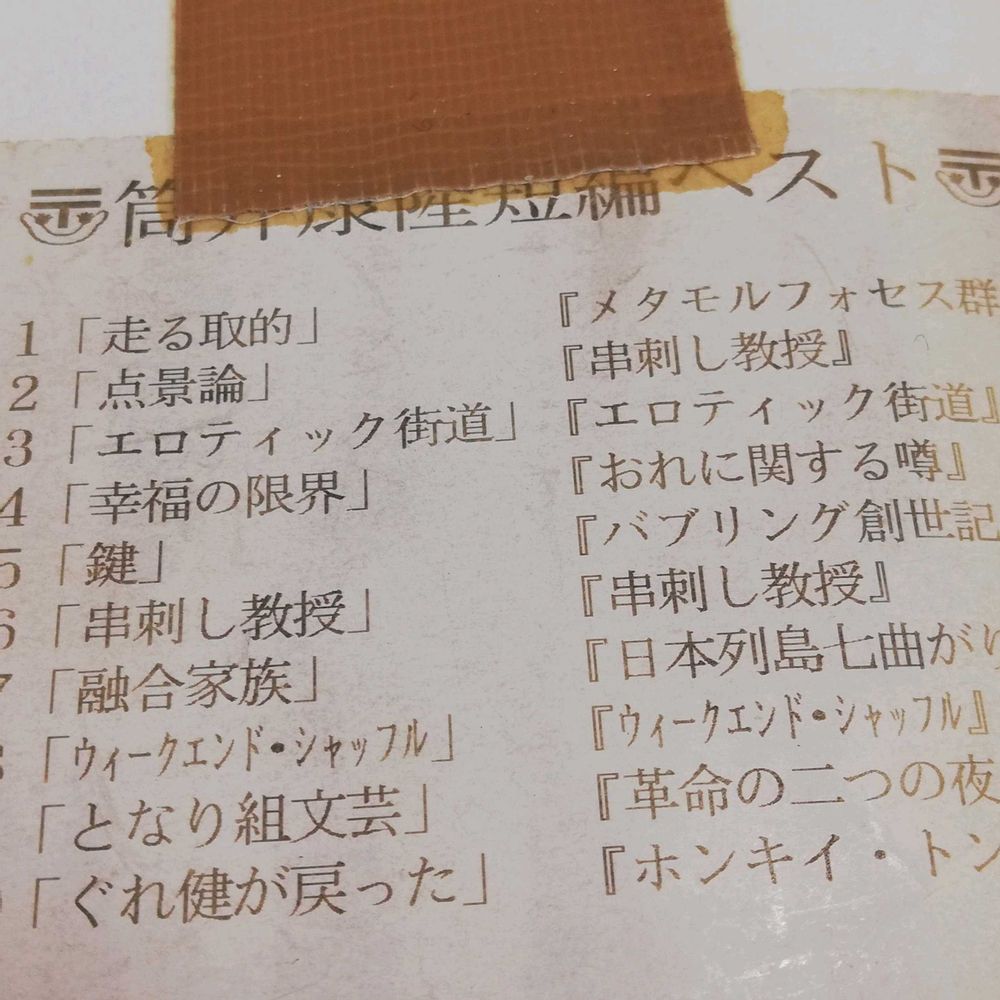 筒井康隆短編ベスト
1「走る取的」 『メタモルフォセス群
2「点景論」 『串刺し教授』
3「エロティック街道」 『エロティック街道』
4「幸福の限界」 『おれに関する噂』
5「鍵」 『バブリング創世記
6「串刺し教授」 『串刺し教授』
7「融合家族」 『日本列島七曲が
「ウィークエンド・シャッフル」 『ウィークエンド・シャッフル』
「となり組文芸」 『革命の二つの夜
「ぐれ健が戻った」 『ホンキイ・トン